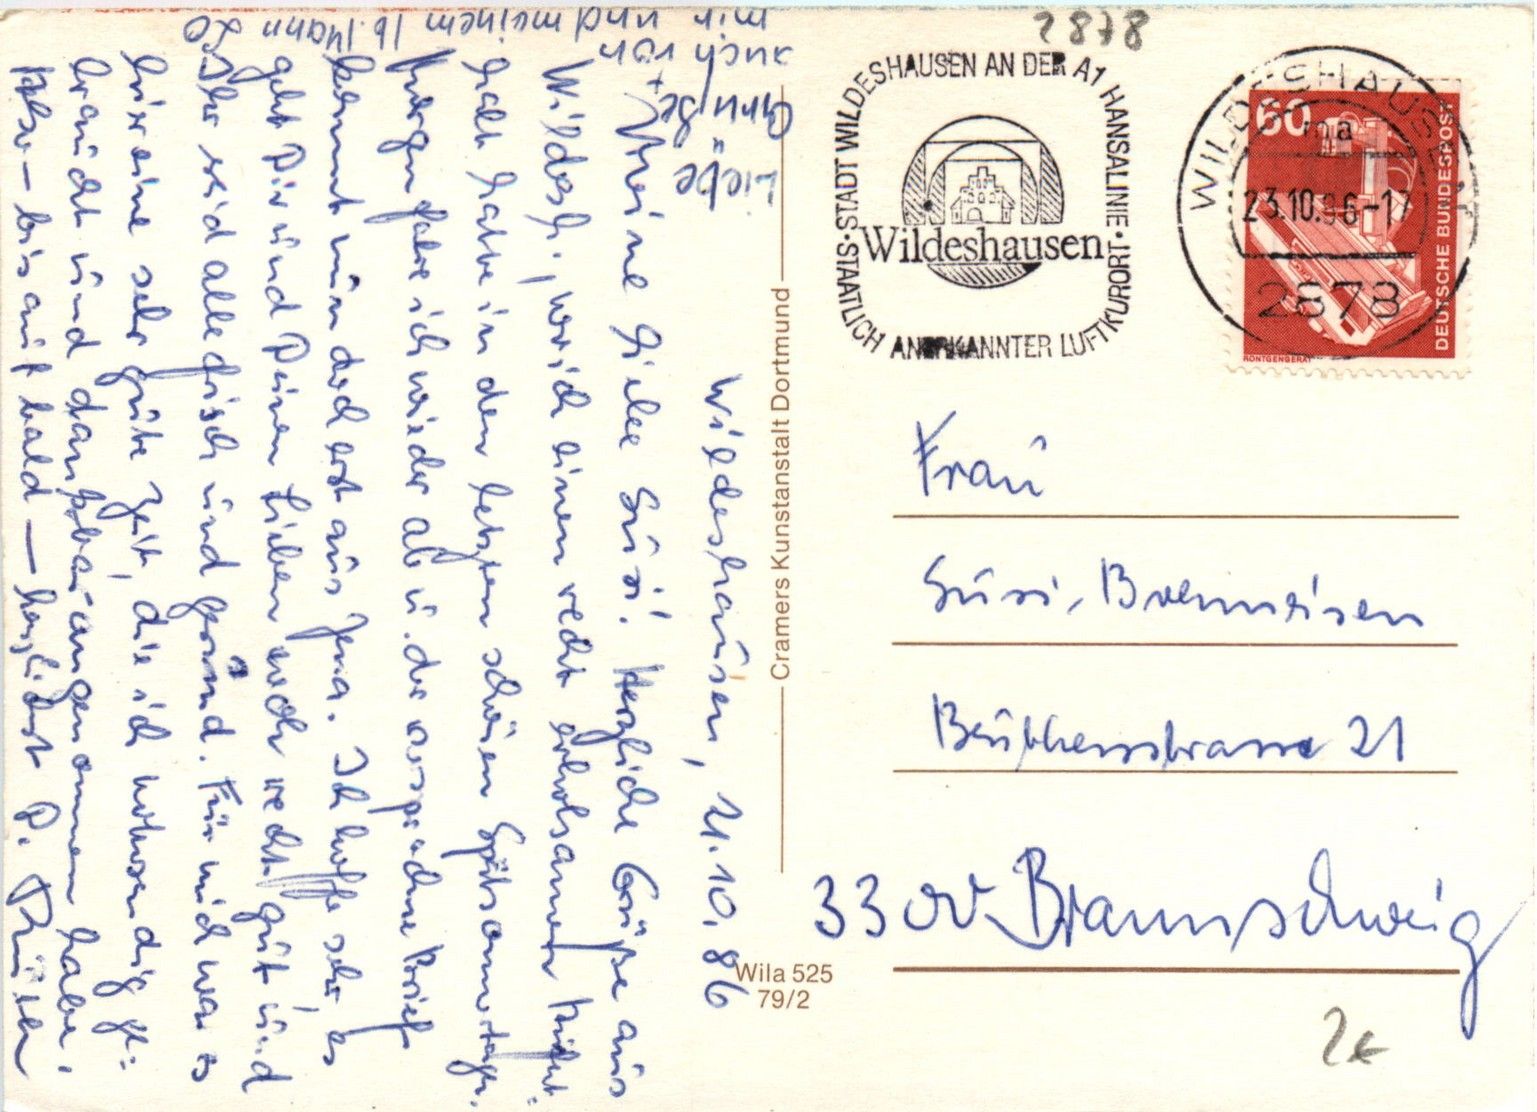 2878
STAATLICH ANERKANNTER LUFTKURORT · STADT WILDESHAUSEN AN DER A1 HANSALINIE ·
Wildeshausen
WILDESHAUSEN
ma
23.10.86-17
2878
60
DEUTSCHE BUNDESPOST
RÖNTGENGERÄT
Frau
Susi
Beuthenstrasse 21
3300 Braunschweig
2€
Cramers Kunstanstalt Dortmund
Wila 525
79/2
Wildeshausen, 21.10.86
Meine liebe Susi! Herzliche Grüße aus
Wildesh., wo ich einen recht erholsamen
halt habe in den letzten schönen Spätsommertagen.
Morgen fahre ich wieder ab u. der versprochene Brief
kommt nun doch erst aus Jena. Ich hoffe sehr, es
geht Dir und Deinen Lieben recht gut und
Ihr seid alle frisch und gesund. Für mich war es
hier eine sehr gute Zeit, die ich notwendig ge-
braucht und dankbar angenommen habe.
Also – bis auf bald – herzlichst D.
Liebe
Grüße
auch von
mir und meinem lb. Mann